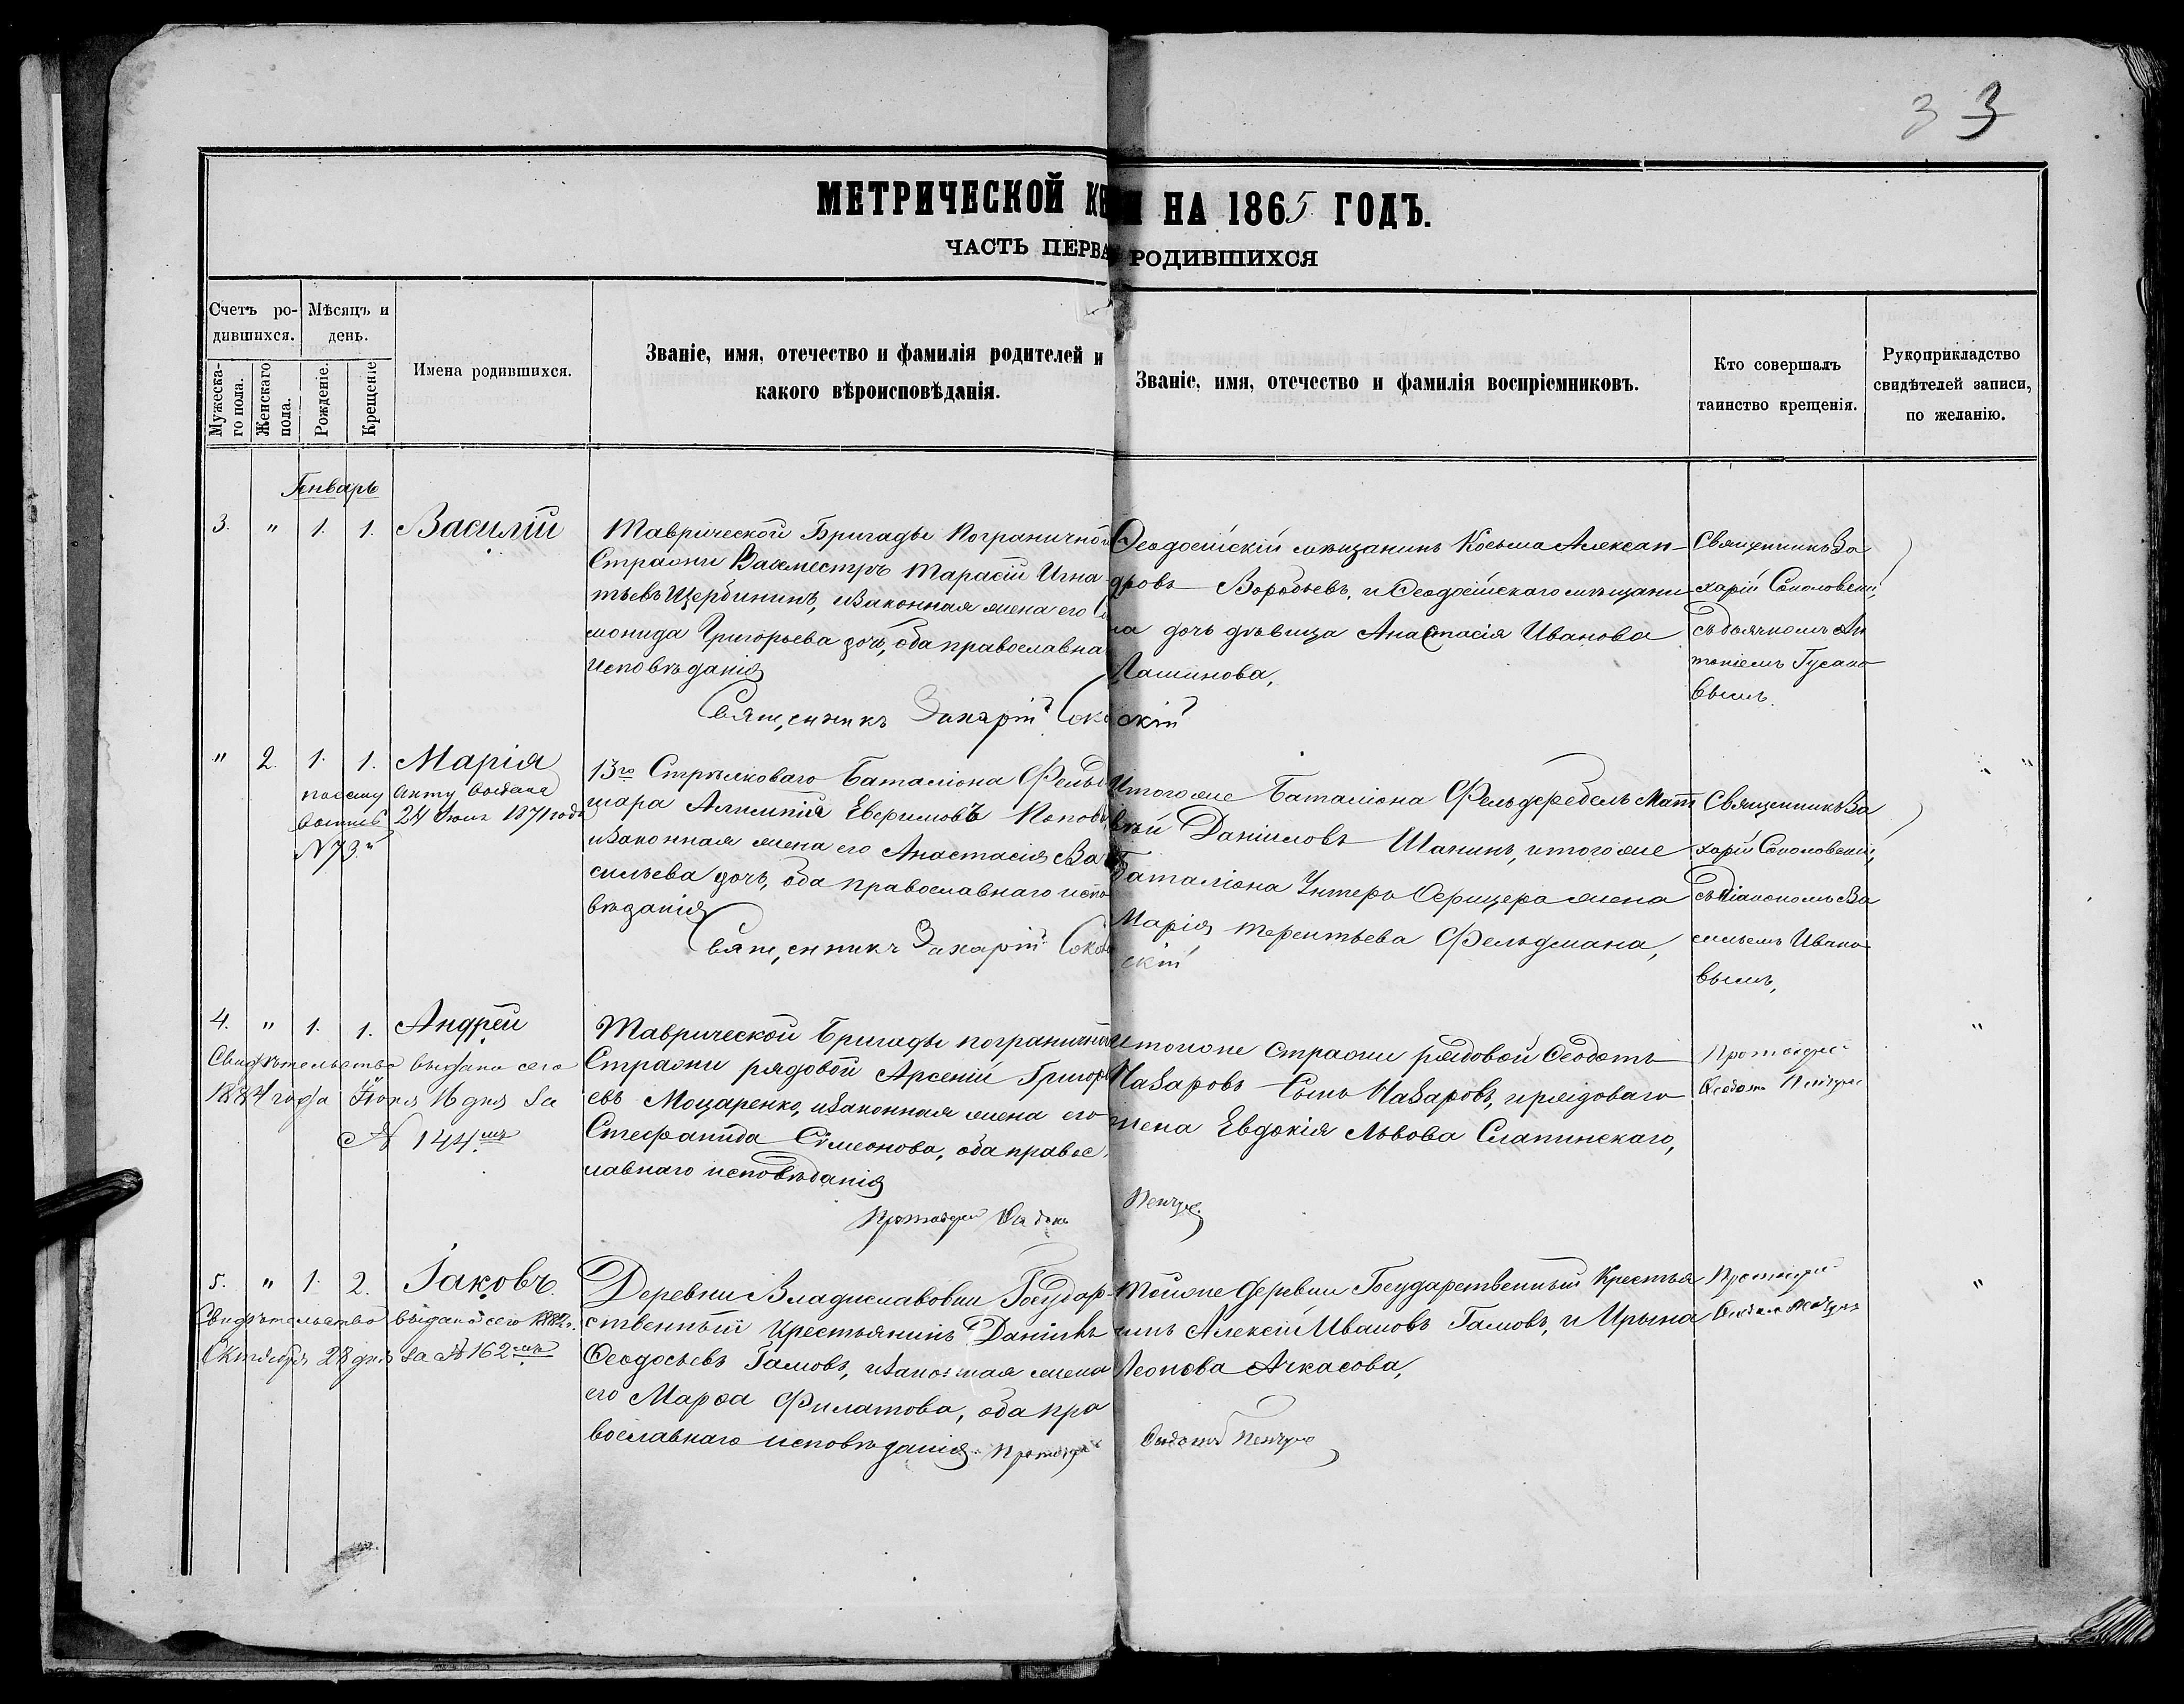 3 3
МЕТРИЧЕСКОЙ КН И НА 1865 ГОДЪ.
ЧАСТЬ ПЕРВА РОДИВШИХСЯ
Счетъ ро-
дившихся.
Мѣсяцъ и
день.
Мужеска-
го пола.
Женскаго
пола.
Рожденіе.
Крещеніе
Имена родившихся.
Званіе, имя, отечество и фамилія родителей и
какого вѣроисповѣданія.
Званіе, имя, отечество и фамилія воспріемниковъ.
Кто совершалъ
таинство крещенія.
Рукоприкладство
свидѣтелей записи,
по желанію.
Генварь
3. " 1. 1. Василій
Таврической Бригады Пограничной
Стражи Вахмистръ Тарасій Игна-
тьевъ Щербининъ, и законная жена его Со
монида Григорьева дочь, оба православна
исповѣданія
Священникъ Захарій Соко
Ѳеодосійскій мѣщанинъ Косьма Алексан-
дровъ Воробьевъ, и Ѳеодосійскаго мѣщани
на дочь дѣвица Анастасія Иванова
Лашинова,
скій
Священникъ За
харій Соколовскій,
съ дьячкомъ Ан
тоніемъ Гусако
вымъ.
" 2. 1. 1. Марія
по сему акту выдана
24 Іюля 1871 года
№ 73.й
13го Стрѣлковаго Баталіона Фельд
шара Алимпій Евфимовъ Поповъ,
и законная жена его Анастасія Ва
сильева дочь, оба православнаго испо
вѣданія
Священникъ Захарій Соколо
И того же Баталіона Фельдфебель Мат
вѣй Даніиловъ Шанинъ, и того же
Баталіона Унтеръ Офицера жена
Марія Терентьева Фельдмана,
скій
Священникъ За
харій Соколовскій,
съ Діакономъ Ва
сильемъ Ивано
вымъ,
"
4. " 1. 1. Андрей
Свидѣтельство выдано сего
1884 года Іюня 16 дня за
№ 144мъ
Таврической Бригады пограничной
Стражи рядовой Арсеній Григорь
евъ Моцаренко, и законная жена его
Стефанида Симеонова, оба правос
лавнаго исповѣданія
Протоіерей
И той же стражи рядовой Ѳеодотъ
Назаровъ Сынъ Назаровъ, и рядоваго
жена Евдокія Львова Слапинскаго,
Протоіерей
"
5. " 1. 2. Іаковъ.
Свидѣтельство выдано сего 1882 г.
Октября 28 дня за № 162мъ
Деревни Владиславовки Государ-
ственный Крестьянинъ Даніилъ
Ѳеодосьевъ Гамовъ, и законная жена
его Марѳа Филатова, оба пра
вославнаго исповѣданія. Протоіерей
Той же деревни Государственный Крестья
инъ Алексій Ивановъ Гамовъ, и Ирына
Леонова Ачкасова,
Протоіерей
"